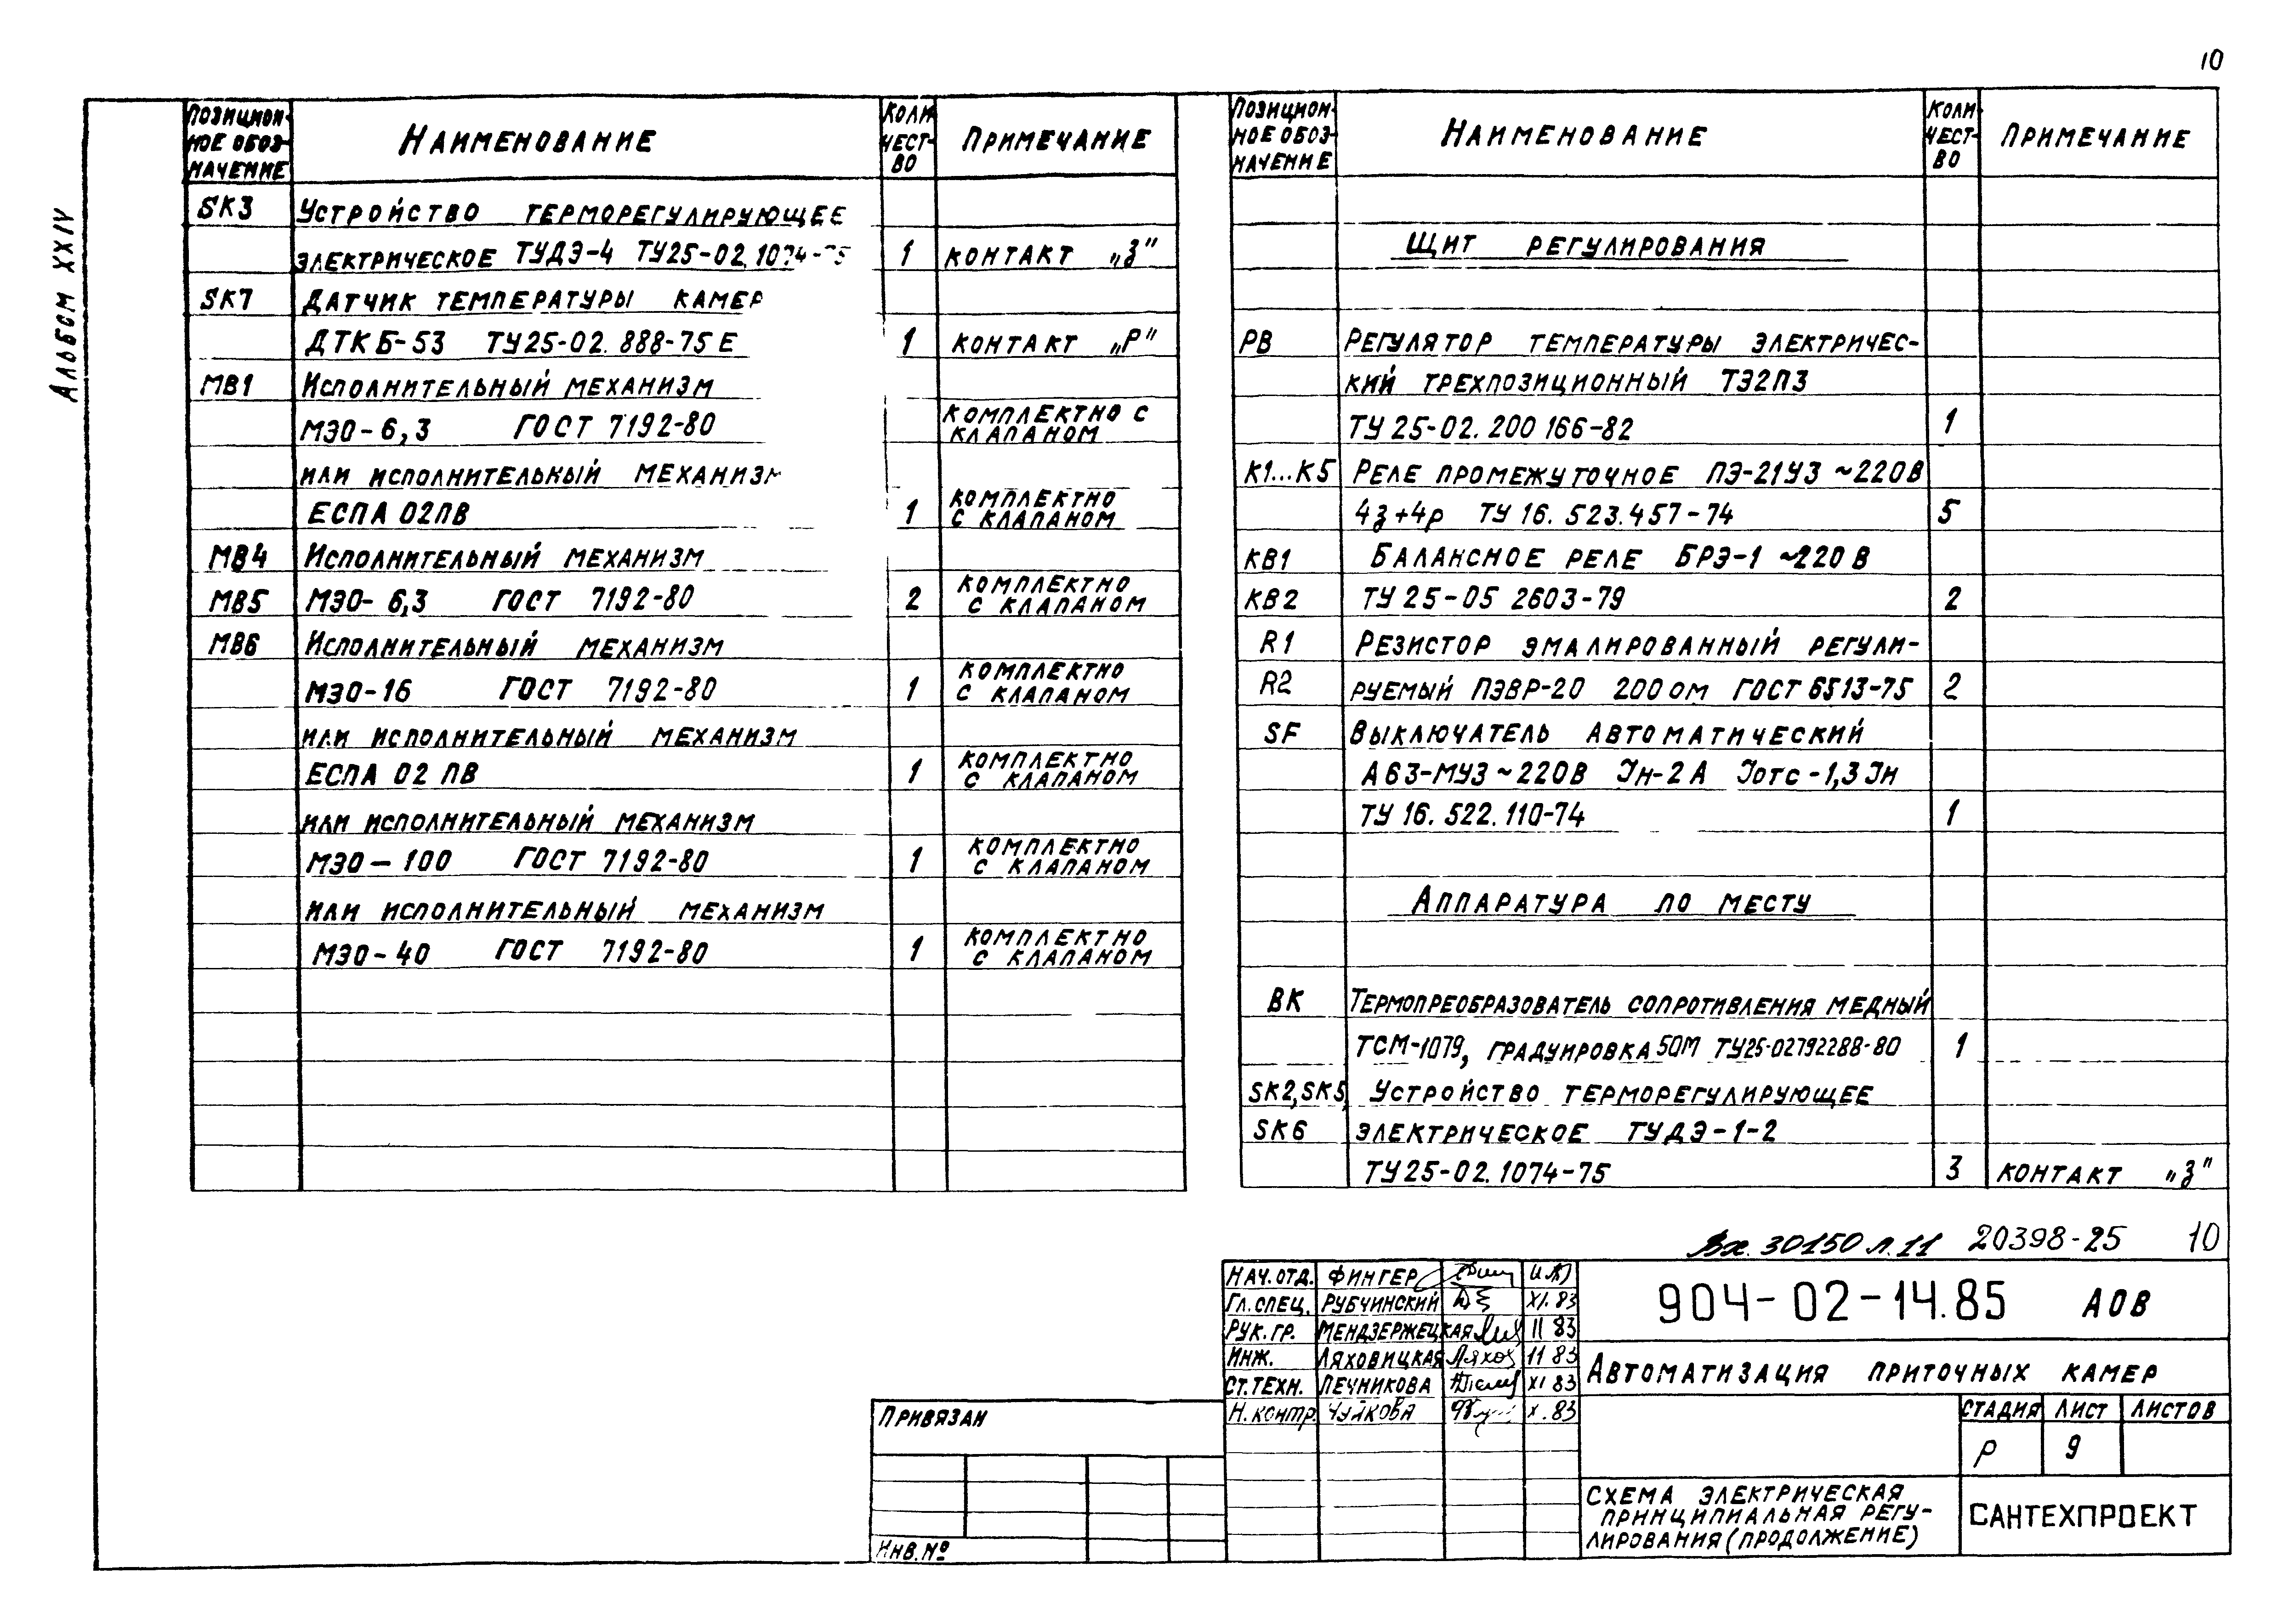 10
Альбом XXIV
Позицион-
ное обоз-
начение
Наименование
Коли-
чест-
во
Примечание
SK3 Устройство терморегулирующее
электрическое ТУДЭ-4 ТУ25-02.1074-75 1 контакт „З"
SK7 Датчик температуры камер
ДТКБ-53 ТУ25-02.888-75 Е 1 контакт „Р"
МВ1 Исполнительный механизм
МЭО-6,3 ГОСТ 7192-80 комплектно с
клапаном
или исполнительный механизм
ЕСПА 02ПВ 1 комплектно
с клапаном
МВ4 Исполнительный механизм
МВ5 МЭО-6,3 ГОСТ 7192-80 2 комплектно
с клапаном
МВ6 Исполнительный механизм
МЭО-16 ГОСТ 7192-80 1 комплектно
с клапаном
или исполнительный механизм
ЕСПА 02 ПВ 1 комплектно
с клапаном
или исполнительный механизм
МЭО-100 ГОСТ 7192-80 1 комплектно
с клапаном
или исполнительный механизм
МЭО-40 ГОСТ 7192-80 1 комплектно
с клапаном
Позицион-
ное обоз-
начение
Наименование
Коли-
чест-
во
Примечание
Щит регулирования
РВ Регулятор температуры электричес-
кий трехпозиционный ТЭ2П3
ТУ 25-02.200 166-82 1
К1...К5 Реле промежуточное ПЭ-21У3 ~220В
4з+4р ТУ 16.523.457-74 5
КВ1 Балансное реле БРЭ-1 ~220 В
КВ2 ТУ 25-05 2603-79 2
R1 Резистор эмалированный регули-
R2 руемый ПЭВР-20 200 ом ГОСТ 6513-75 2
SF Выключатель автоматический
А63-МУ3 ~220В Iн-2А Iотс-1,3 Iн
ТУ 16.522.110-74 1
Аппаратура по месту
ВК Термопреобразователь сопротивления медный
ТСМ-1079, градуировка 50М ТУ25-02792288-80 1
SK2,SK5, Устройство терморегулирующее
SK6 электрическое ТУДЭ-1-2
ТУ25-02.1074-75 3 контакт „З"
Вх. 30150 л.11 20398-25 10
Нач.отд. Фингер
Гл.спец. Рубчинский XI.83
Рук.гр. Мендзержецкая 11 83
Инж. Ляховицкая Ляхов 11 83
Ст.техн. Печникова XI 83
Н.контр. Чуйкова X.83
904-02-14.85 АОВ
Автоматизация приточных камер
Стадия Лист Листов
Р 9
Схема электрическая
принципиальная регу-
лирования (продолжение)
САНТЕХПРОЕКТ
Привязан
Инв.№